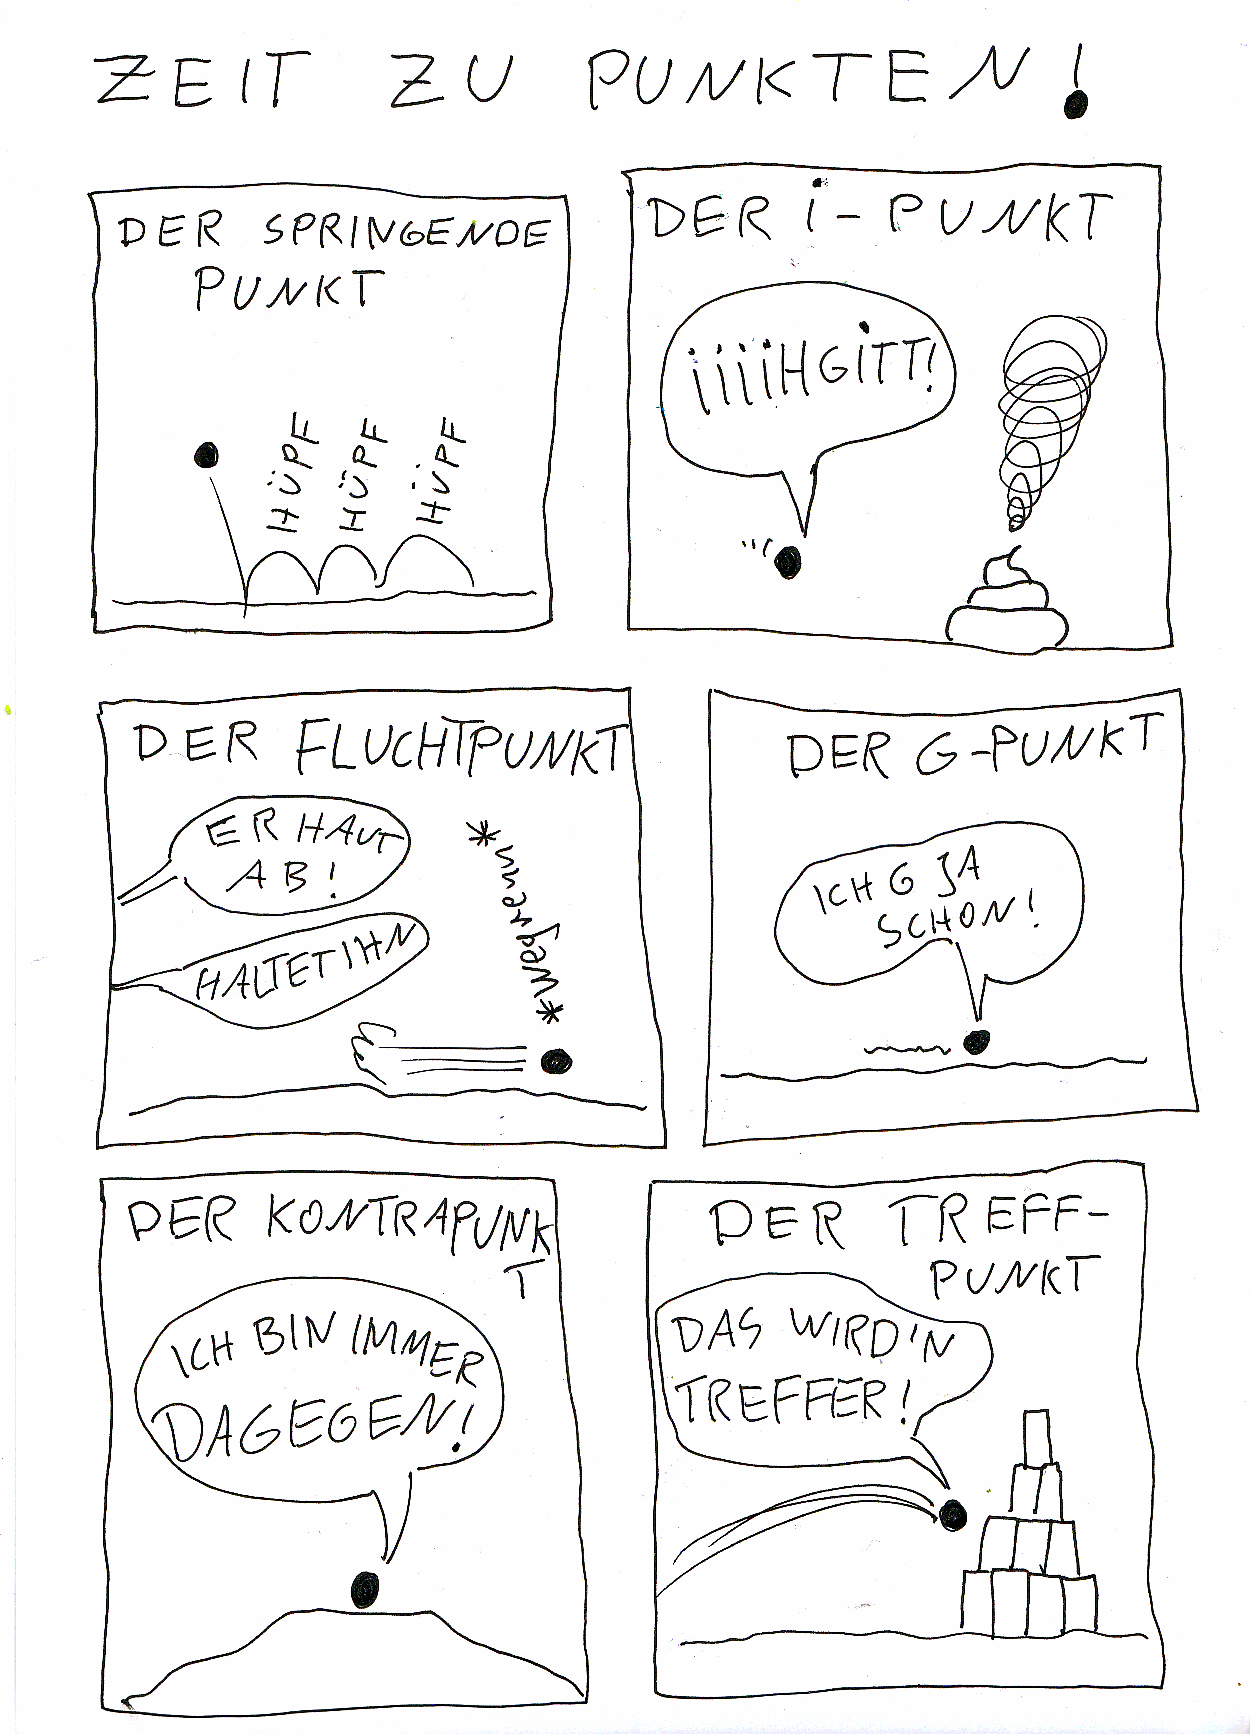 ZEIT ZU PUNKTEN!
DER SPRINGENDE
PUNKT
HÜPF
HÜPF
HÜPF
DER i-PUNKT
iiiiHGiTT!
DER FLUCHTPUNKT
ER HAUT
AB!
HALTET IHN
*wegrenn*
DER G-PUNKT
ICH G JA
SCHON!
DER KONTRAPUNK
T
ICH BIN IMMER
DAGEGEN!
DER TREFF-
PUNKT
DAS WIRD'N
TREFFER!